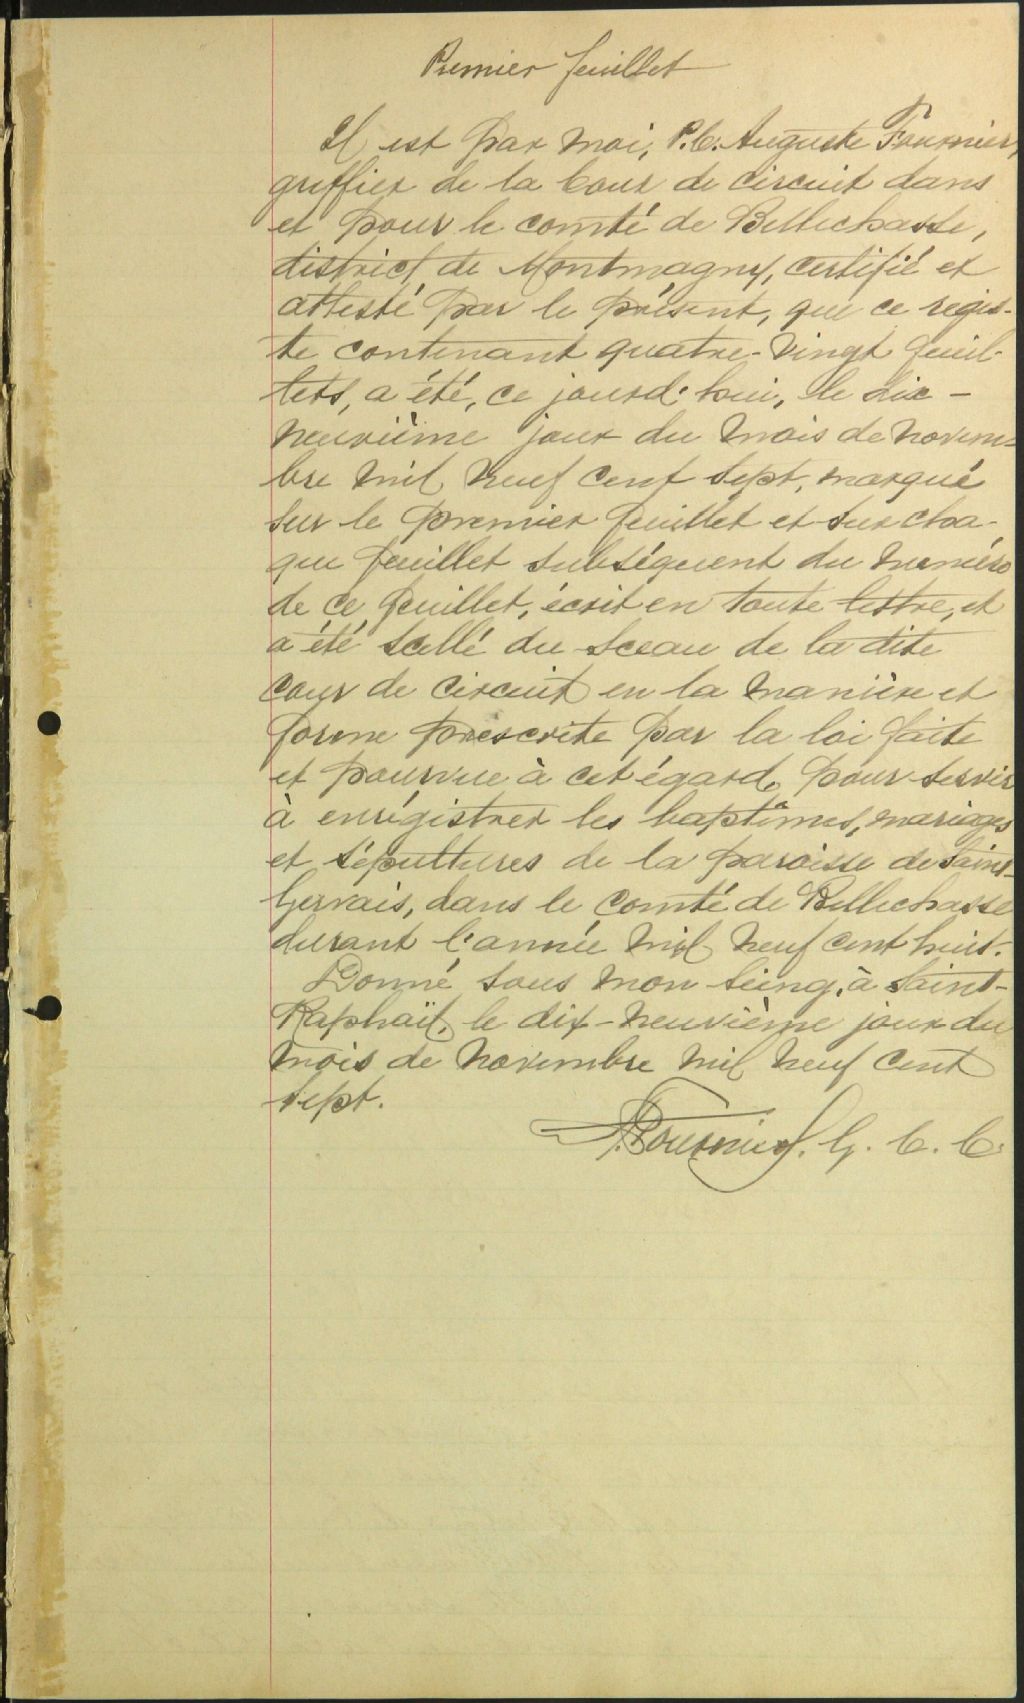 Premier feuillet
Il est par moi, P.C. Auguste Fournier,
greffier de la Cour de circuit dans
et pour le comté de Bellechasse,
district de Montmagny, certifié et
attesté par le présent, que ce regis-
tre contenant quatre-vingt feuil-
lets, a été, ce jourd'hui, le dix-
neuvième jour du mois de novem-
bre mil neuf cent sept, marqué
sur le premier feuillet et sur cha-
que feuillet subséquent du numéro
de ce feuillet, écrit en toute lettre, et
a été scellé du sceau de la dite
cour de circuit en la manière et
forme prescrite par la loi faite
et pourvue à cet égard, pour servir
à enrégistrer les baptêmes, mariages
et sépultures de la paroisse de Saint-
Gervais, dans le comté de Bellechasse
durant l'année mil neuf cent huit.
Donné sous mon seing, à Saint-
Raphaël, le dix-neuvième jour du
mois de novembre mil neuf cent
sept.
A. Fournier. G. C. C.